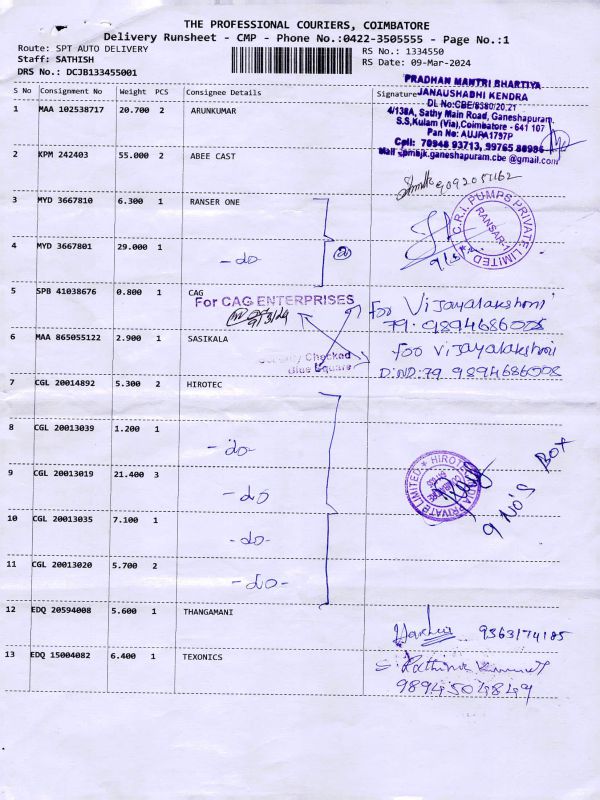 THE PROFESSIONAL COURIERS, COIMBATORE
Delivery Runsheet - CMP - Phone No.:0422-3505555 - Page No.:1
Route: SPT AUTO DELIVERY
RS No.: 1334550
Staff: SATHISH
RS Date: 09-Mar-2024
DRS No.: DCJB133455001
S No Consignment No Weight PCS Consignee Details Signature
PRADHAN MANTRI BHARTIYA
JANAUSHADHI KENDRA
DL No:CBE/8380/20,21
4/138A, Sathy Main Road, Ganeshapuram,
S.S,Kulam (Via),Coimbatore - 641 107
Pan No: AUJPA1797P
Cell: 70948 93713, 99765 88986
Mail :pmbjk.ganeshapuram.cbe @gmail.com
1 MAA 102538717 20.700 2 ARUNKUMAR
2 KPM 242403 55.000 2 ABEE CAST
9092051162
3 MYD 3667810 6.300 1 RANSER ONE
C.R.I. PUMPS PRIVATE LIMITED
RANSAR-1
4 MYD 3667801 29.000 1
- do
5 SPB 41038676 0.800 1 CAG
For CAG ENTERPRISES
9/3/24
For Vijayalakshmi
79: 9894686008
6 MAA 865055122 2.900 1 SASIKALA
for vijayalakshmi
D.NO: 79 9894686008
Security Checked
Blue Square
7 CGL 20014892 5.300 2 HIROTEC
8 CGL 20013039 1.200 1
- do -
9 CGL 20013019 21.400 3
- do
HIROTEC INDIA PRIVATE LIMITED
9 No's Box
10 CGL 20013035 7.100 1
- do -
11 CGL 20013020 5.700 2
- do -
12 EDQ 20594008 5.600 1 THANGAMANI
9363174185
13 EDQ 15004082 6.400 1 TEXONICS
9894504849